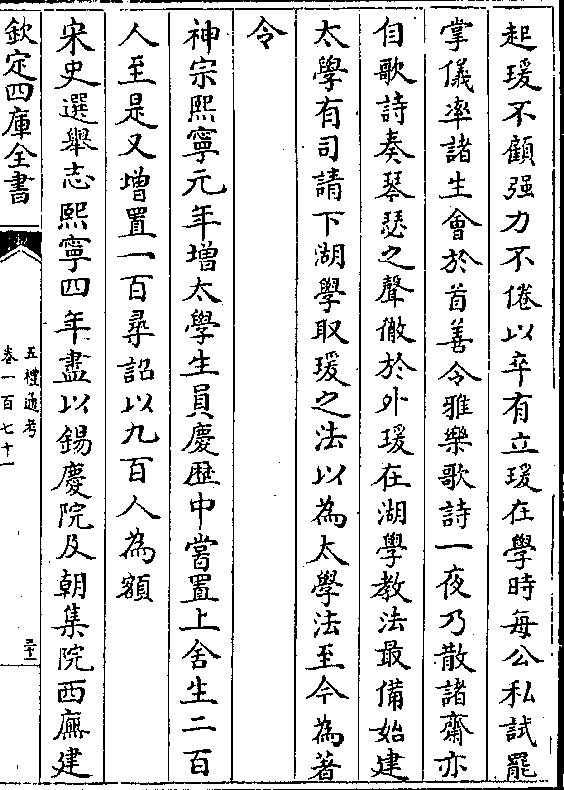 起瑗不顧强力不倦以卒有立瑗在學時每公私試罷
掌儀率諸生會於首善令雅樂歌詩一夜乃散諸齋亦
自歌詩奏琴瑟之聲徹於外瑗在湖學教法最備始建
太學有司請下湖學取瑗之法以為太學法至今為著
令
神宗熙寧元年增太學生員慶歴中嘗置上舍生二百
人至是又增置一百尋詔以九百人為額
宋史選舉志熙寧四年盡以錫慶院及朝集院西廡建
欽定四庫全書
五禮通考
卷一百七十一